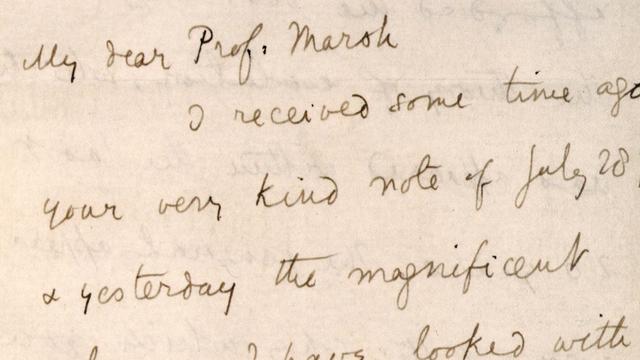 My dear Prof. Marsh
I received some time ago
your very kind note of July 28
& yesterday the magnificent
I have looked with